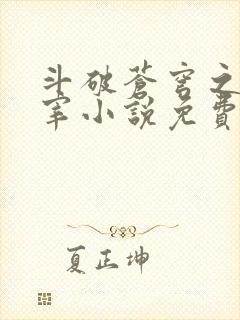 斗破蒼穹之
宰小說免費
夏正坤